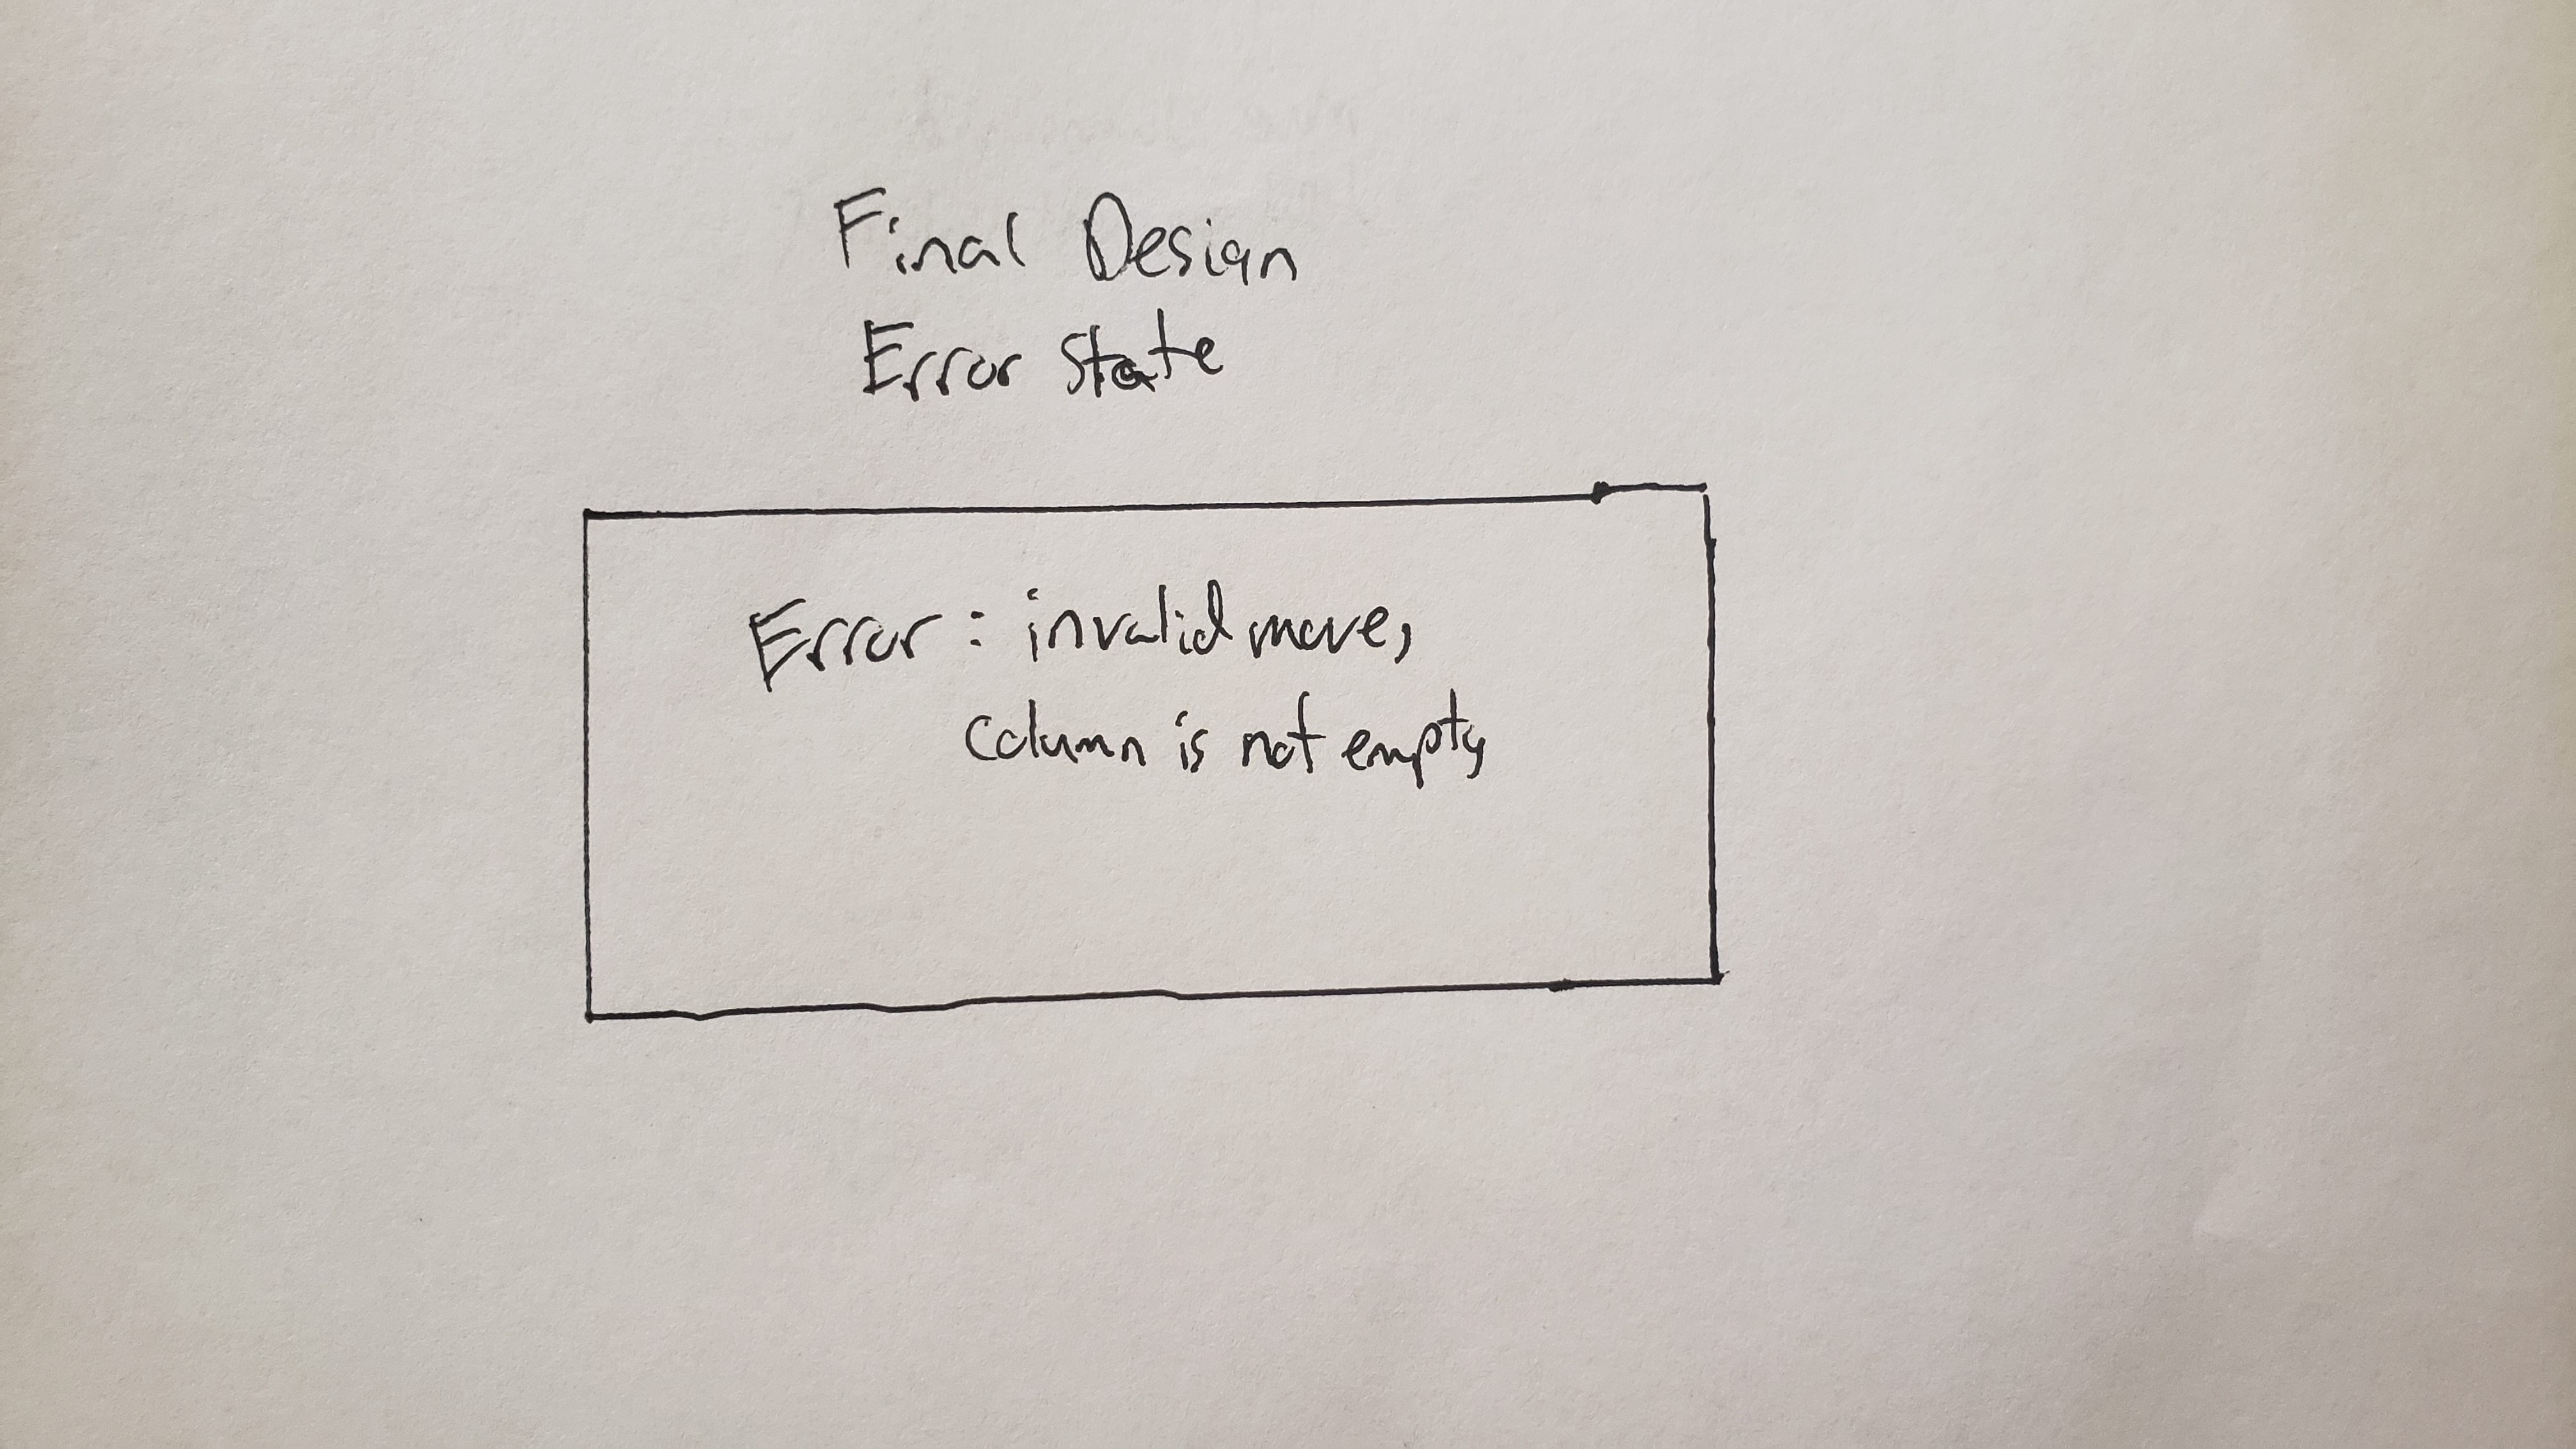 Final Design
Error State
Error: invalid move,
column is not empty